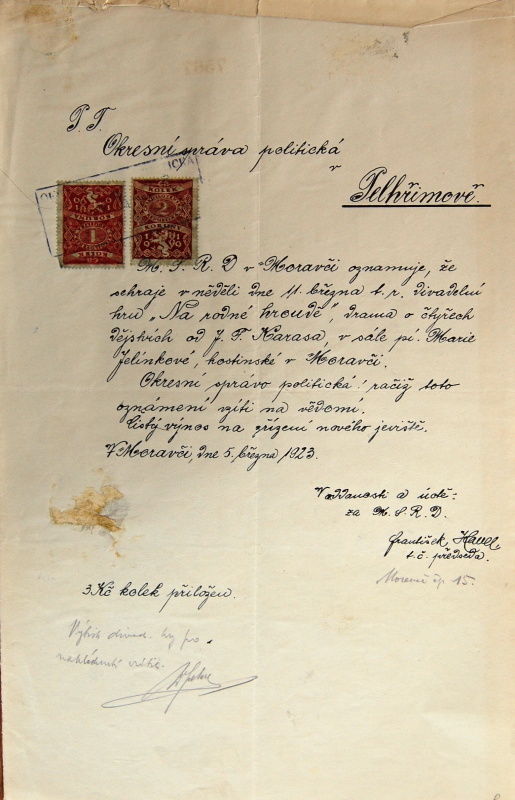 P. T.
Okresní správa politická
v
Pelhřimově.
KOLEK
1
KOLEK
2
KORUNY
M. S. R. D v Moravči oznamuje, že
sehraje v neděli dne 11. března t. r. divadelní
hru „Na rodné hroudě", drama o čtyřech
dějstvích od J. F. Karasa, v sále pí. Marie
Jelínkové, hostinské v Moravči.
Okresní správo politická! račiž toto
oznámení vzíti na vědomí.
Čistý výnos na zřízení nového jeviště.
V Moravči, dne 5. března 1923.
V oddanosti a úctě-
za M. S. R. D.
František Havel
t. č. předseda.
Moraveč čp 15.
3 Kč kolek přiložen.
Výtisk divad. hry po